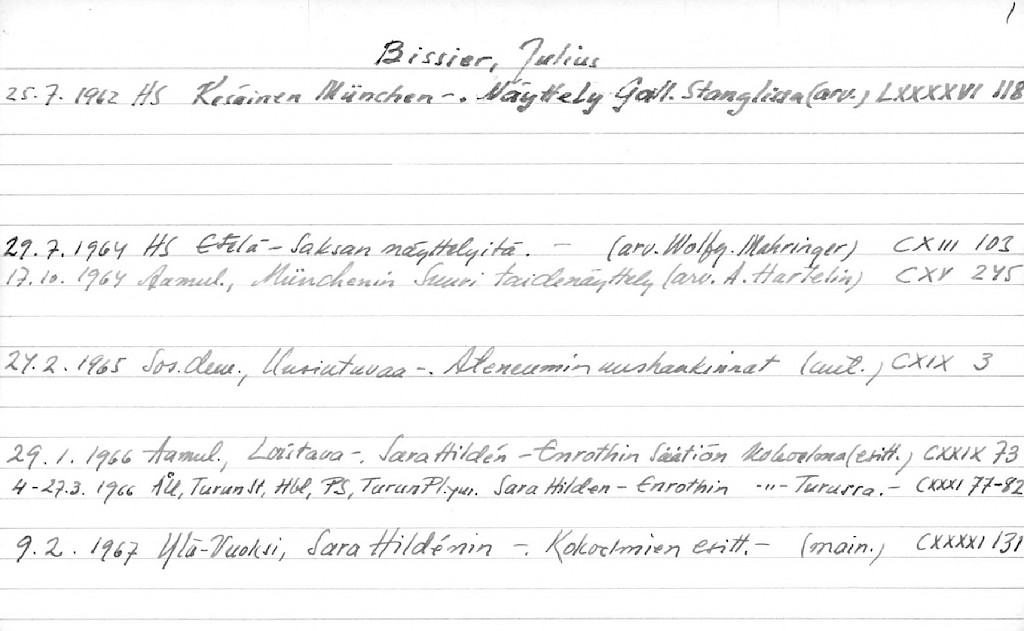 1
Bissier, Julius
25.7.1962 HS Kesäinen München -. Näyttely Gall. Stanglissa (arv.) LXXXXVI 118
29.7.1964 HS Etelä-Saksan näyttelyitä. - (arv. Wolfg. Mahringer) CXIII 103
17.10.1964 Aamul., Münchenin Suuri taidenäyttely (arv. A. Hartelin) CXV 245
24.2.1965 Sos.dem., Uusiutuvaa -. Ateneumin uushankinnat (uut.) CXIX 3
29.1.1966 Aamul., Loistava -. Sara Hildén - Enrothin Säätiön kokoelma (esitt.) CXXIX 73
4-27.3. 1966 ÅU, Turun St, Hbl, PS, Turun Pl.ym. Sara Hilden - Enrothin -"- Turussa. - CXXXI 77-82
9.2.1967 Ylä-Vuoksi, Sara Hildénin -. Kokoelmien esitt. - (main.) CXXXXI 131